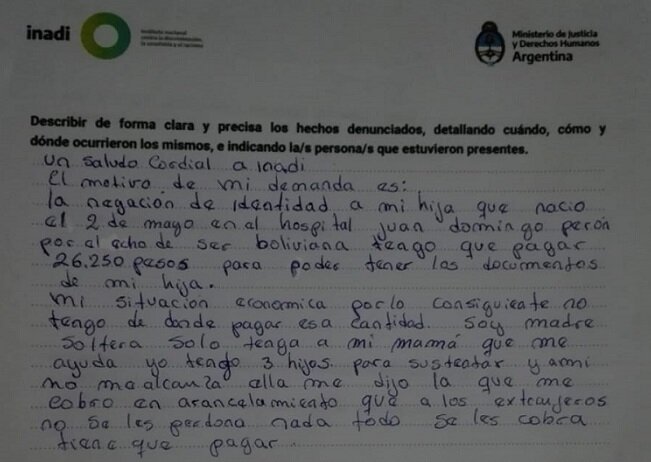 inadi
instituto nacional
contra la discriminación,
la xenofobia y el racismo
Ministerio de Justicia
y Derechos Humanos
Argentina
Describir de forma clara y precisa los hechos denunciados, detallando cuándo, cómo y
dónde ocurrieron los mismos, e indicando la/s persona/s que estuvieron presentes.
un saludo Cordial a inadi
El motivo de mi demanda es:
la negación de identidad a mi hija que nacio
el 2 de mayo en el hospital juan domingo perón
por el echo de ser boliviana tengo que pagar
26.250 pesos para poder tener los documentos
de mi hija.
mi situación economica por lo consiguiente no
tengo de donde pagar esa cantidad. soy madre
soltera solo tenga a mi mamá que me
ayuda yo tengo 3 hijos para sustentar y ami
no me alcanza ella me dijo la que me
cobro en arancelamiento que a los extranjeros
no se les perdona nada todo se les cobra
tiene que pagar.